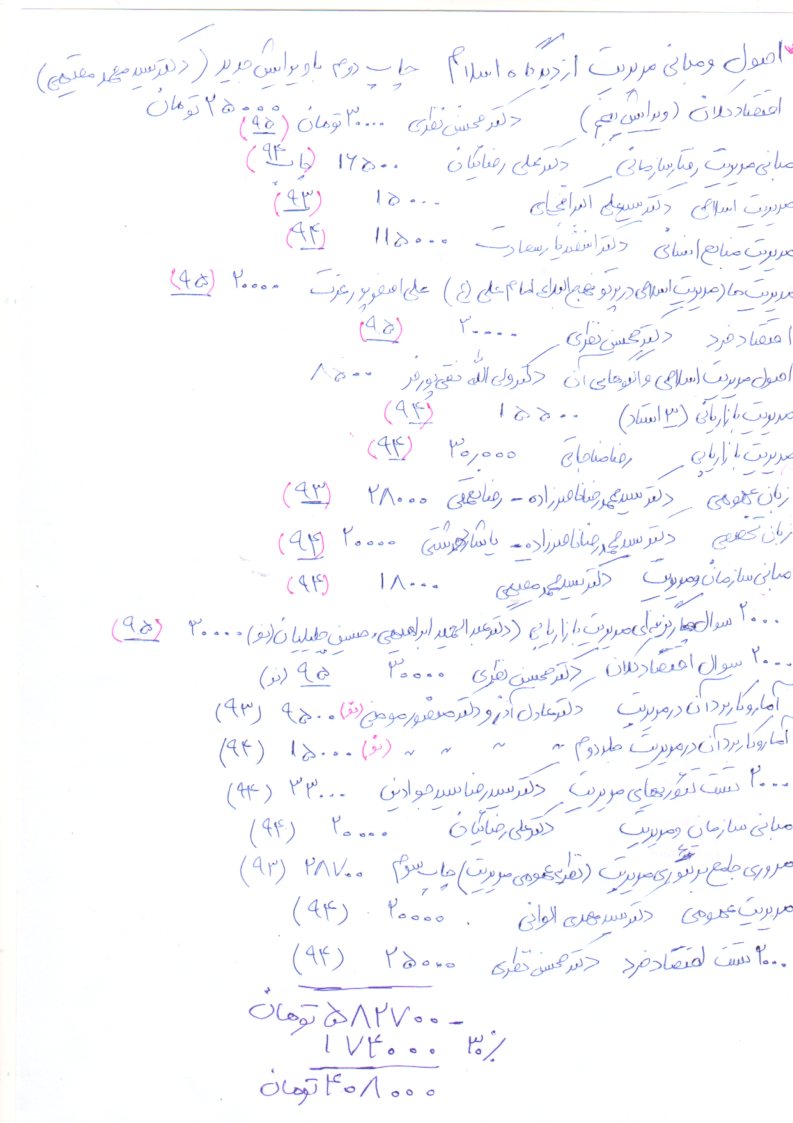 اصول و مبانی مدیریت از دیدگاه اسلام چاپ دوم با ویرایش جدید (دکتر سید محمد مقیمی)
۲۵۰۰۰ تومان
اقتصاد کلان (ویرایش پنجم) دکتر محسن نظری ۳۰۰۰۰ تومان (۹۵)
مبانی مدیریت رفتار سازمانی دکتر علی رضائیان ۱۶۵۰۰ (چاپ ۹۴)
مدیریت اسلامی دکتر سید علی اکبر افجه‌ای ۱۵۰۰۰ (۹۳)
مدیریت منابع انسانی دکتر اسفندیار سعادت ۱۱۵۰۰۰ (۹۴)
مدیریت ما (مدیریت اسلامی در پرتو نهج البلاغه امام علی (ع) ) علی اصغر پورعزت ۲۰۰۰۰ (۹۵)
اقتصاد خرد دکتر محسن نظری ۲۰۰۰۰ (۹۵)
اصول مدیریت اسلامی و الگوهای آن دکتر ولی الله نقی پورفر ۸۵۰۰
مدیریت بازاریابی (۳ استاد) ۱۵۵۰۰ (۹۴)
مدیریت بازاریابی رضا صالحی ۳۰,۰۰۰ (۹۴)
زبان عمومی دکتر سید محمدرضا ناصرزاده - رضا همتی ۲۸۰۰۰ (۹۳)
زبان تخصصی دکتر سید محمدرضا ناصرزاده - یاشار دشتی ۲۰۰۰۰ (۹۴)
مبانی سازمان و مدیریت دکتر سید محمد مقیمی ۱۸۰۰۰ (۹۴)
۲۰۰۰ سوال چهارگزینه‌ای مدیریت بازاریابی (دکتر عبدالحمید ابراهیمی، حسین جلیلیان (نو) ۳۰۰۰۰ (۹۵)
۲۰۰۰ سوال اقتصاد کلان دکتر محسن نظری ۳۰۰۰۰ ۹۵ (نو)
آمار و کاربرد آن در مدیریت دکتر عادل آذر و دکتر منصور مومنی (نو) ۹۵۰۰ (۹۳)
آمار و کاربرد آن در مدیریت جلد دوم " " " " (نو) ۱۵۰۰۰ (۹۴)
۲۰۰۰ تست تئوریهای مدیریت دکتر سید رضا سید جوادین ۳۳۰۰۰ (۹۴)
مبانی سازمان و مدیریت دکتر علی رضائیان ۲۰۰۰۰ (۹۴)
مروری جامع بر تئوری مدیریت (نظریه عمومی مدیریت) چاپ سوم ۲۸۷۰۰ (۹۳)
مدیریت عمومی دکتر سید مهدی الوانی ۲۰۰۰۰ (۹۴)
۲۰۰۰ تست اقتصاد خرد دکتر محسن نظری ۲۵۰۰۰ (۹۴)
۵۸۲۷۰۰ تومان -
۳۰٪ ۱۷۴۰۰۰
۴۰۸۰۰۰ تومان